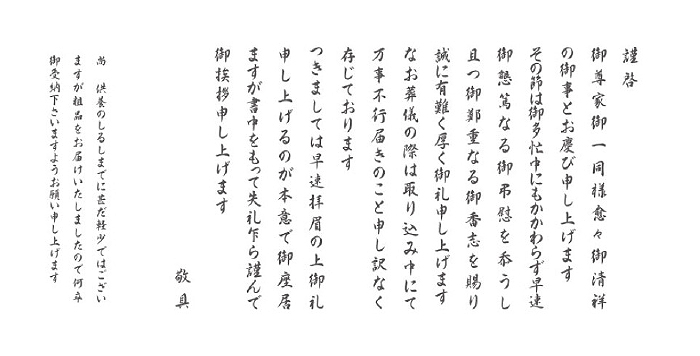 謹啓
御尊家御一同様愈々御清祥
の御事とお慶び申し上げます
その節は御多忙中にもかかわらず早速
御懇篤なる御弔慰を忝うし
且つ御鄭重なる御香志を賜り
誠に有難く厚く御礼申し上げます
なお葬儀の際は取り込み中にて
万事不行届きのこと申し訳なく
存じております
つきましては早速拝眉の上御礼
申し上げるのが本意で御座居
ますが書中をもって失礼乍ら謹んで
御挨拶申し上げます
敬具
尚 供養のしるしまでに甚だ軽少ではござい
ますが粗品をお届けいたしましたので何卒
御受納下さいますようお願い申し上げます